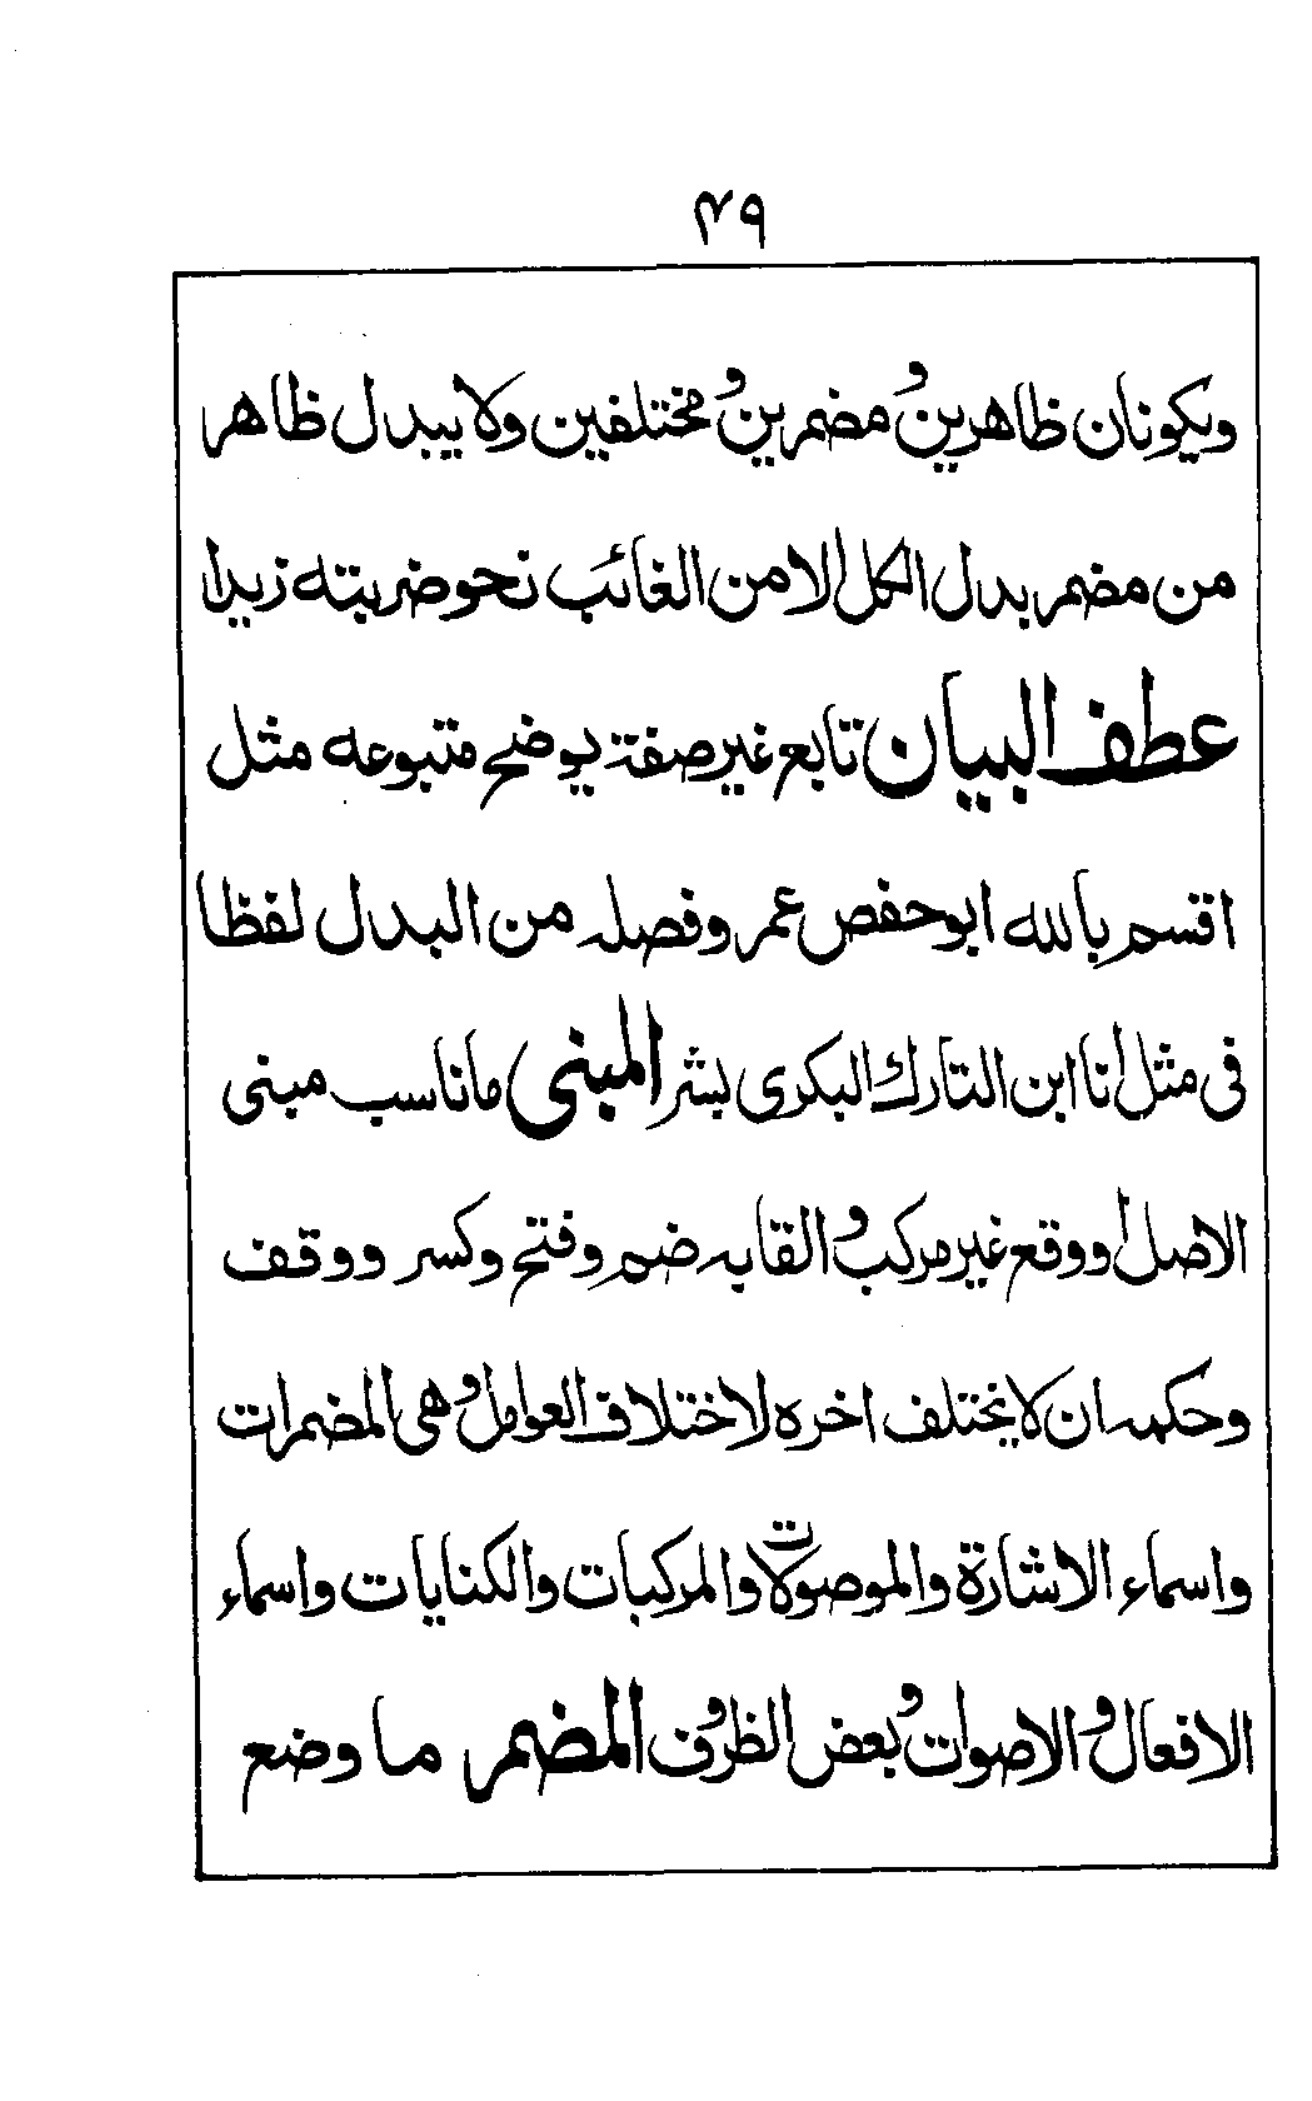 ۴۹
ويكونان ظاهرين و مضمرين و مختلفين ولا يبدل ظاهر
من مضمر بدل الكل الا من الغائب نحو ضربته زيدا
عطف البيان تابع غير صفة يوضح متبوعه مثل
اقسم بالله ابو حفص عمر وفصله من البدل لفظا
فى مثل انا ابن التارك البكرى بشر المبنى ما ناسب مبنى
الاصل او وقع غير مركب و القابه ضم وفتح وكسر ووقف
وحكمه ان لا يختلف اخره لاختلاف العوامل و هى المضمرات
واسماء الاشارة والموصولات والمركبات والكنايات واسماء
الافعال و الاصوات و بعض الظروف المضمر ما وضع